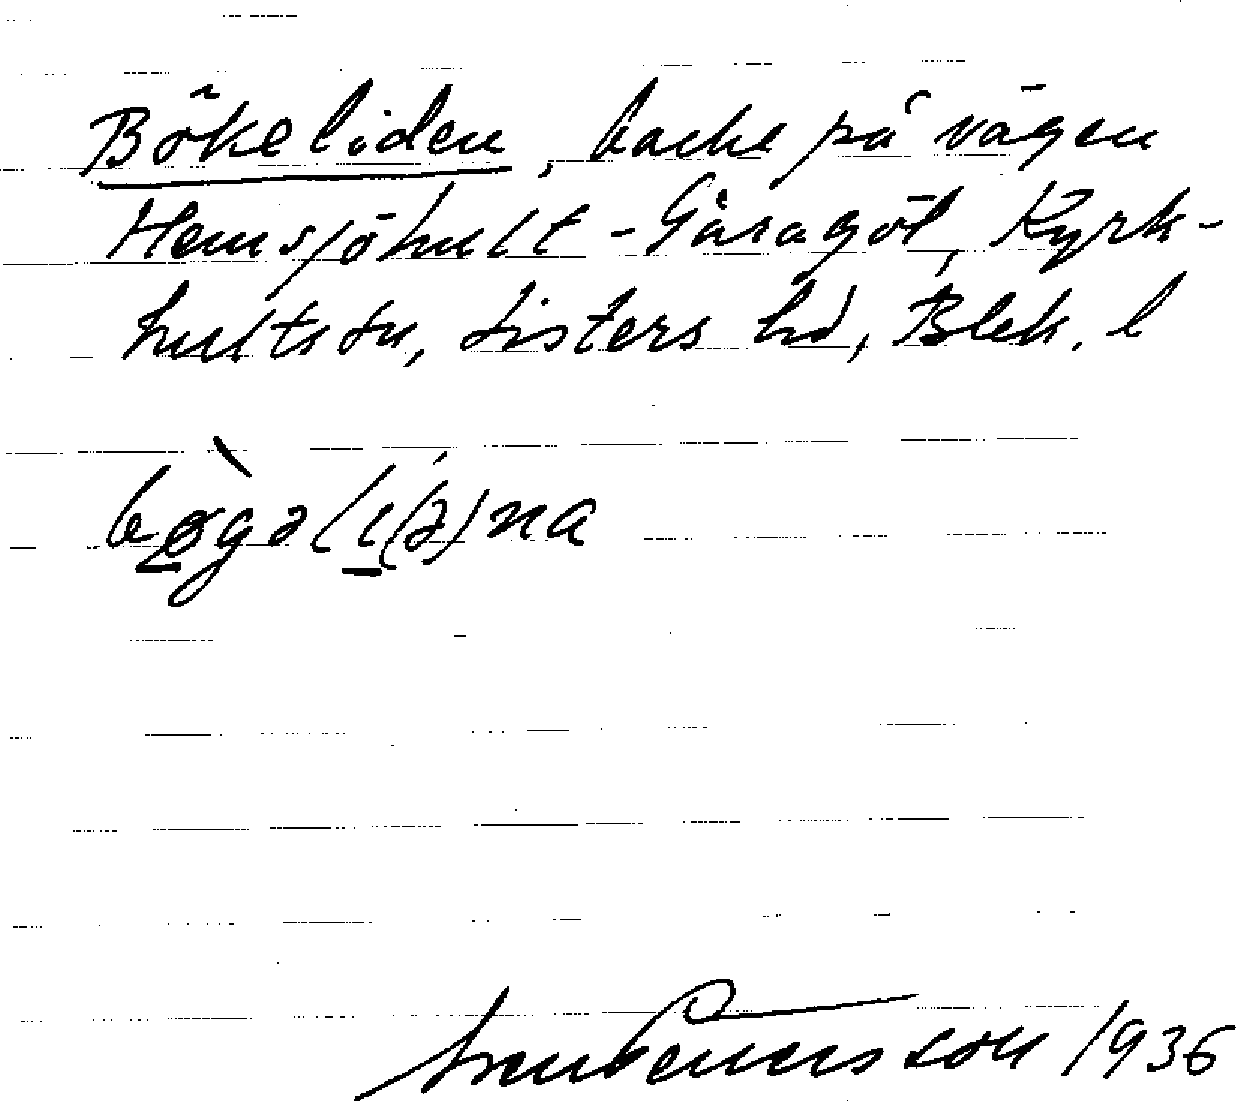 Bökeliden, backe på vägen
Hemsjöhult - Gåsagöl, Kyrk-
hults sn, Listers hd, Blek. l
bø̠̀gəlı̠(ə)na
Sven Benson 1936